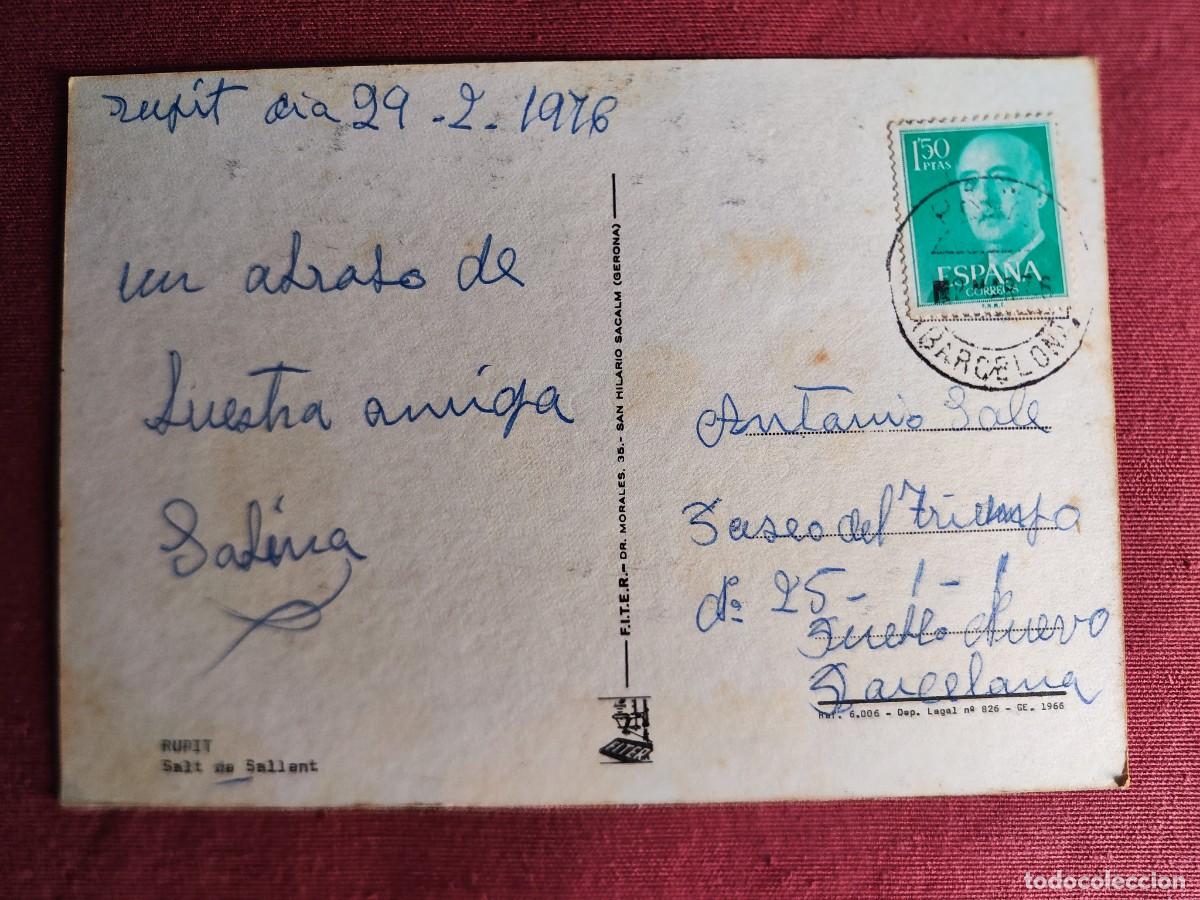 rupit dia 29-2-1976
un abraso de
buestra amiga
Sabina
RUPIT
Salt de Sallent
F.I.T.E.R.- DR. MORALES, 35.- SAN HILARIO SACALM (GERONA)
FITER
1'50
PTAS
ESPAÑA
CORREOS
(BARCELONA)
Antonio Sale
Paseo del Triumpo
nº 25 - 1 - 1
Pueblo Nuevo
Barcelona
Ref. 6.006 - Dep. Legal nº 826 - GE. 1966
todocoleccion